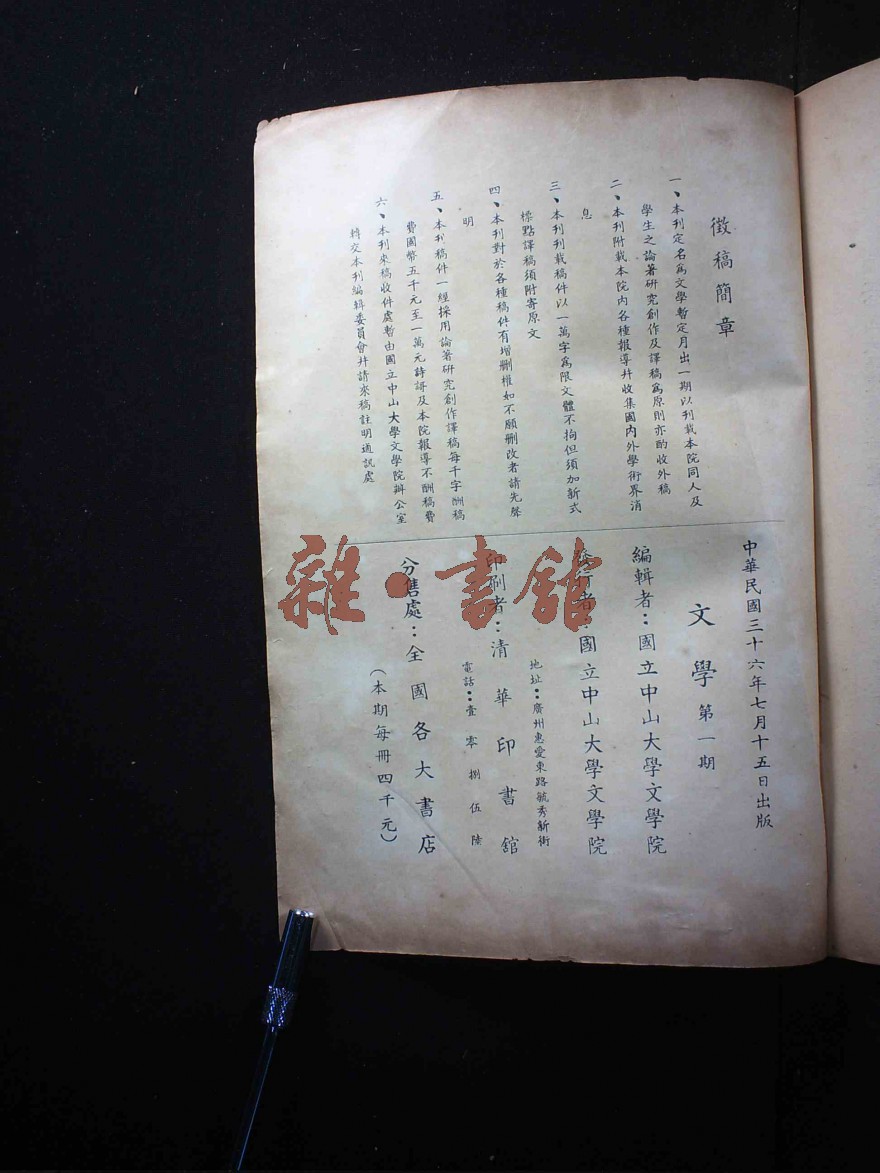 徵稿簡章
一、本刊定名爲文學暫定月出一期以刊載本院同人及
學生之論著研究創作及譯稿爲原則亦酌收外稿
二、本刊附載本院內各種報導幷收集國內外學術界消
息
三、本刊刊載稿件以一萬字爲限文體不拘但須加新式
標點譯稿須附寄原文
四、本刊對於各種稿件有增删權如不願删改者請先聲
明
五、本刊稿件一經採用論著研究創作譯稿每千字酬稿
費國幣五千元至一萬元詩謌及本院報導不酬稿費
六、本刊來稿收件處暫由國立中山大學文學院辦公室
轉交本刊編輯委員會幷請來稿註明通訊處
中華民國三十六年七月十五日出版
文學 第一期
編輯者：國立中山大學文學院
發行者：國立中山大學文學院
地址：廣州惠愛東路毓秀新街
印刷者：清華印書舘
電話：壹零捌伍陸
分售處：全國各大書店
（本期每冊四千元）
雜·書舘